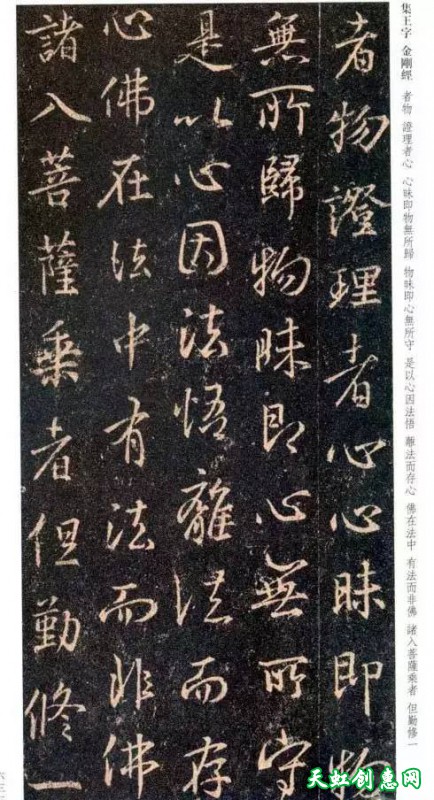 集王字 金剛經 者物 證理者心 心昧即物無所歸 物昧即心無所守 是以心因法悟 離法而存心 佛在法中 有法而非佛 諸入菩薩乘者 但勤修一
者物證理者心心昧即物
無所歸物昧即心無所守
是以心因法悟離法而存
心佛在法中有法而非佛
諸入菩薩乘者但勤修一
天虹创惠网